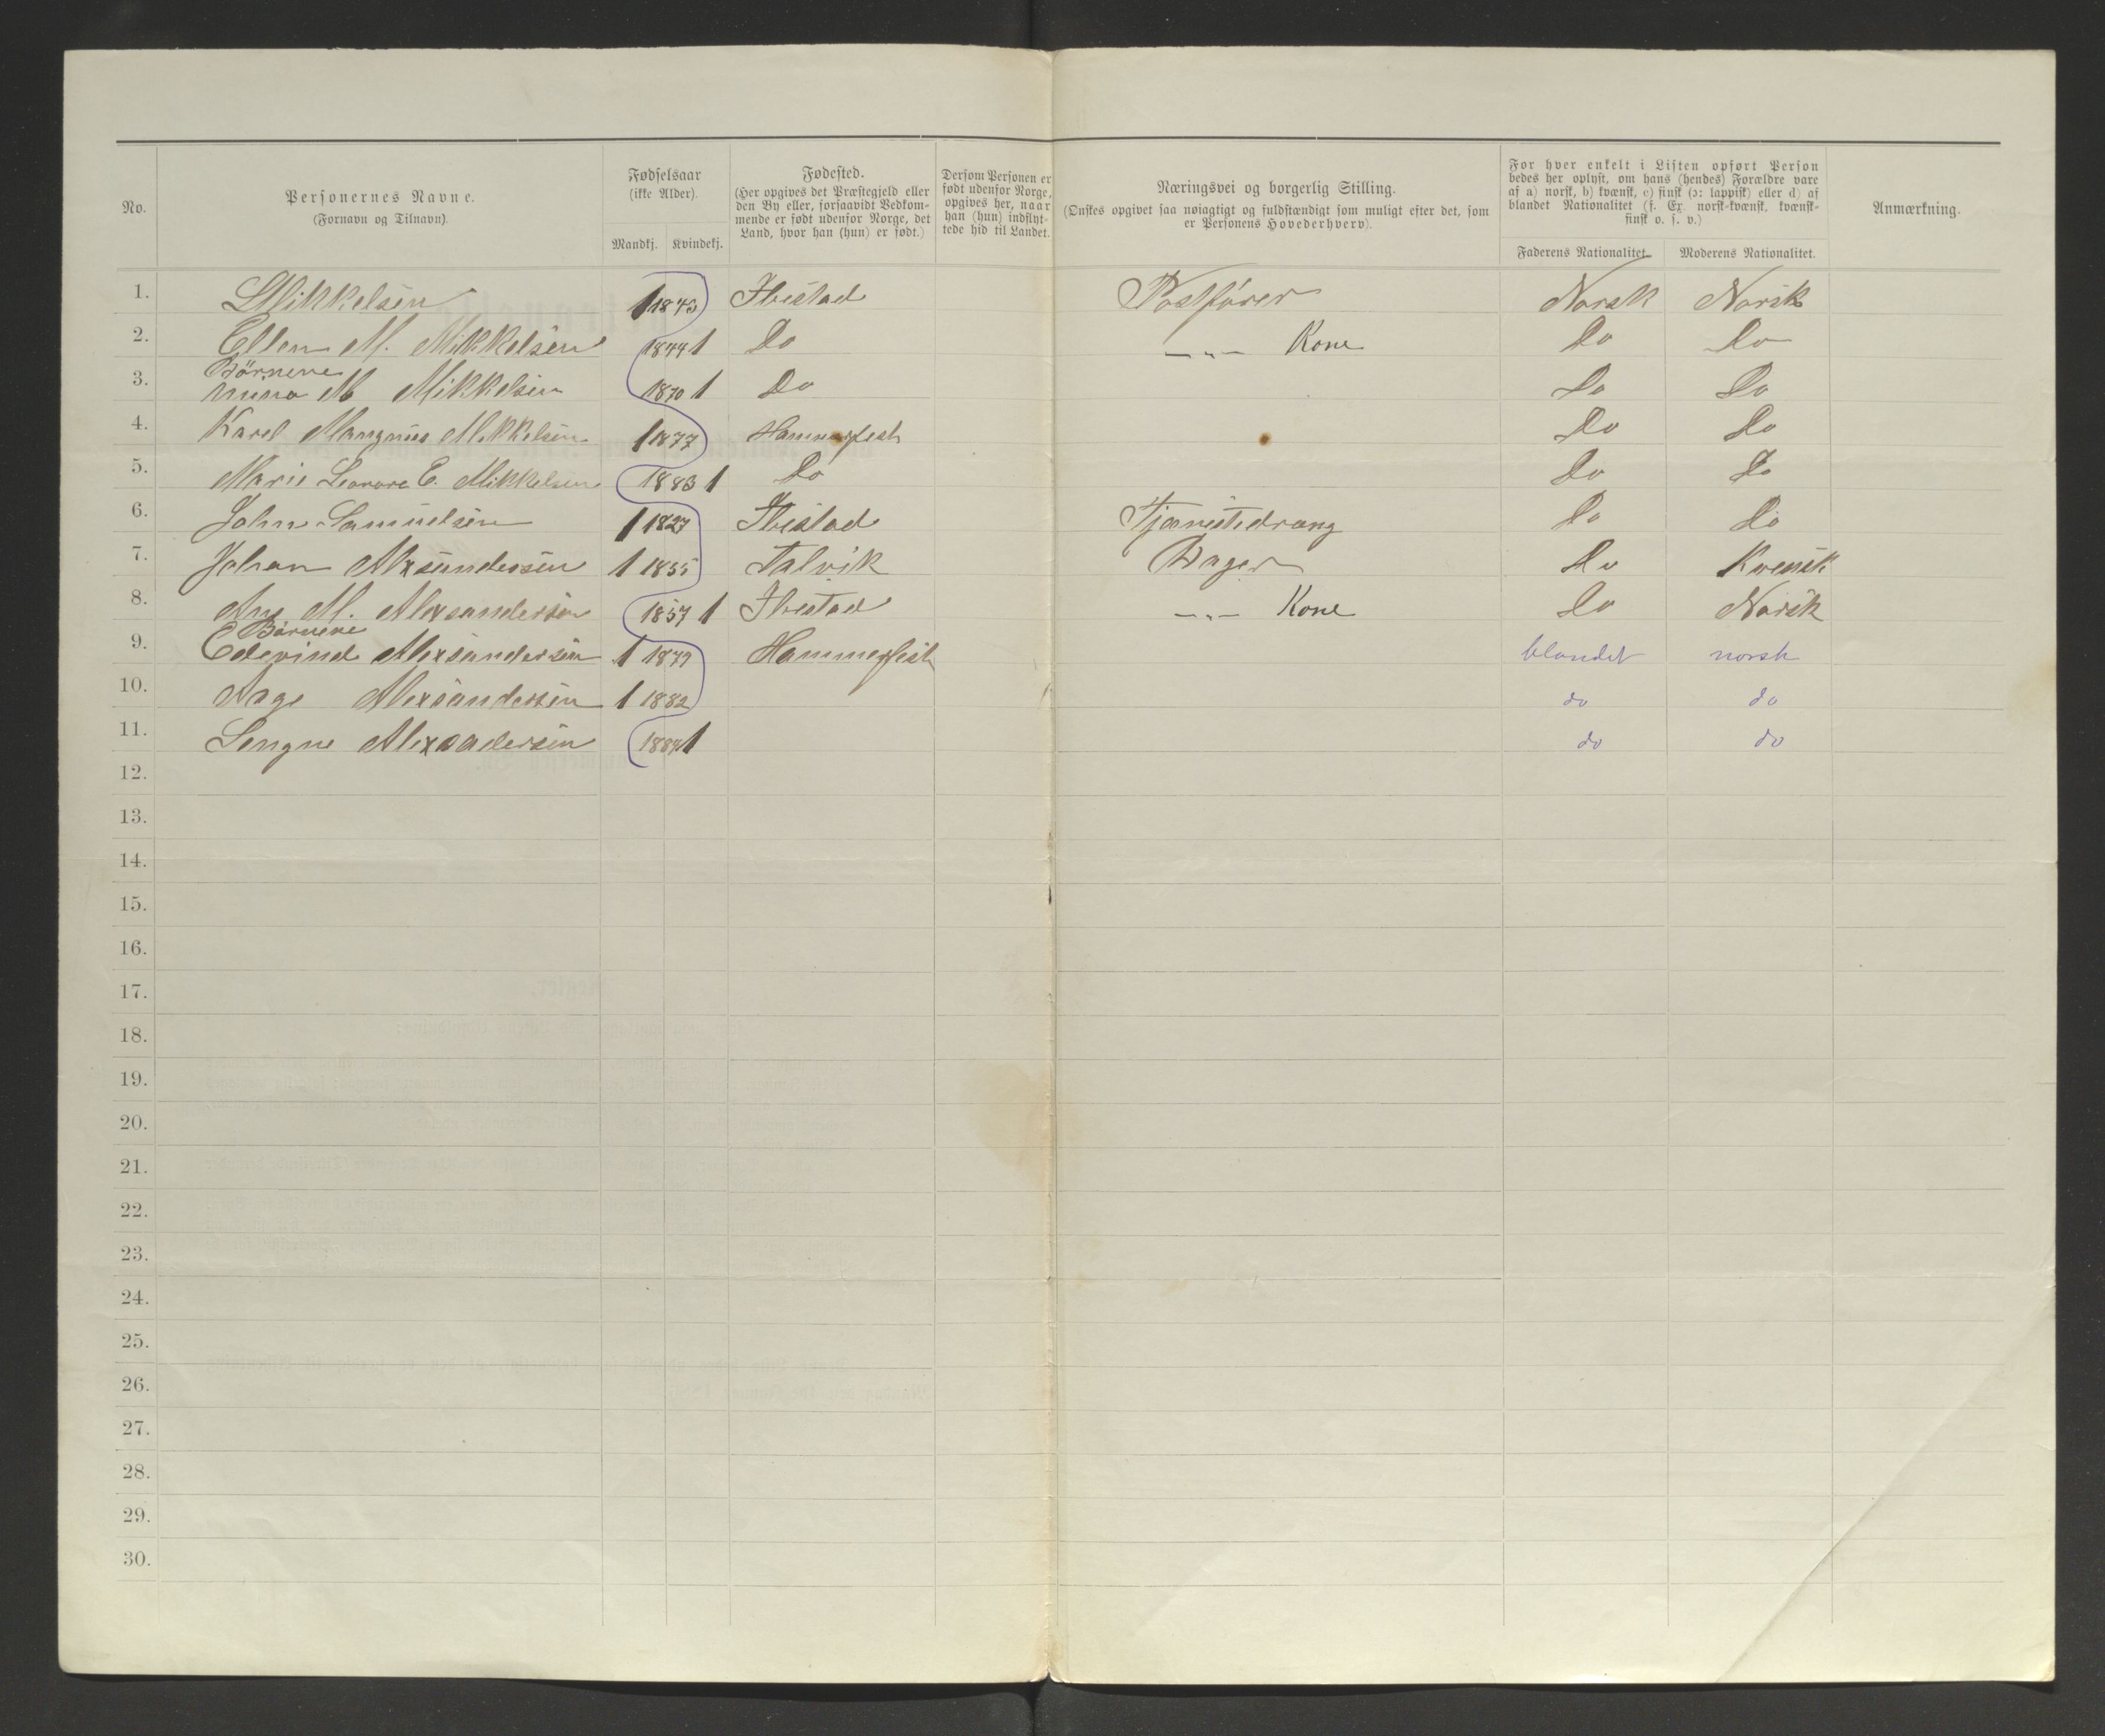 No. Personernes Navne. (Fornavn og Tilnavn). Fødselsaar (ikke Alder). Mandkj. Kvindekj. Fødested. (Her opgives det Præstegjeld eller den By eller, forsaavidt Vedkommende er født udenfor Norge, det Land, hvor han (hun) er født.) Dersom Personen er født udenfor Norge, opgives her, naar han (hun) indflyttede hid til Landet. Næringsvei og borgerlig Stilling. (Ønskes opgivet saa nøiagtigt og fuldstændigt som muligt efter det, som er Personens Hovederhverv). For hver enkelt i Listen opført Person bedes her oplyst, om hans (hendes) Forældre vare af a) norsk, b) kvænsk, c) finsk (ɔ: lappisk) eller d) af blandet Nationalitet (f. Ex. norsk-kvænsk, kvænsk-finsk o. s. v.) Faderens Nationalitet. Moderens Nationalitet. Anmærkning.
1. Mikkelsen 1 1843 Ibestad Postfører Norsk Norsk
2. Ellen M. Mikkelsen 1844 1 Do —„— Kone Do Do
Börnene
3. M Mikkelsen 1870 1 Do Do Do
4. Karel Mangnus Mikkelsen 1 1877 Hammerfest Do Do
5. Marie Leonore E. Mikkelsen 1883 1 Do Do Do
6. John Samuelsen 1 1827 Ibestad Tjænestedræng Do Do
7. Johan Alxsandersen 1 1855 Talvik Do Kvensk
8. M. Alexsandersen 1857 1 Ibestad —„— Kone Do Norsk
Börnene
9. Edevind Alexsandersen 1 1879 Hammerfest blandet norsk
10. Aage Alexsandersen 1 1882 do do
11. Alexsandersen 1884 1 do do
12.
13.
14.
15.
16.
17.
18.
19.
20.
21.
22.
23.
24.
25.
26.
27.
28.
29.
30.